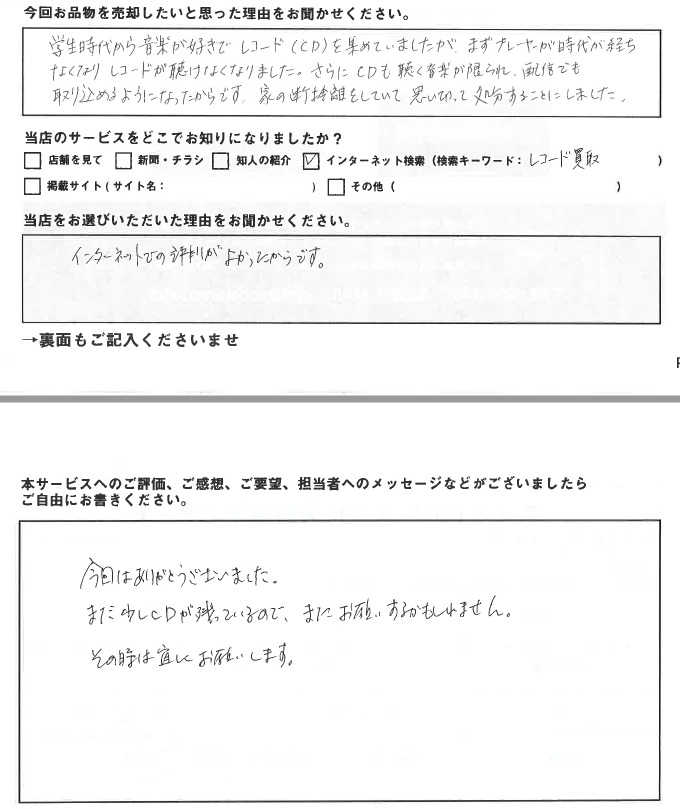 今回お品物を売却したいと思った理由をお聞かせください。
学生時代から音楽が好きで レコード(CD)を集めていましたが、まずプレーヤーが時代が経ち
なくなり レコードが聴けなくなりました。さらに CDも 聴く音楽が限られ、配信でも
取り込めるようになったからです。家の断捨離をしていて 思い切って 処分することにしました。
当店のサービスをどこでお知りになりましたか?
□ 店舗を見て □ 新聞・チラシ □ 知人の紹介 ☑ インターネット検索(検索キーワード: レコード買取 )
□ 掲載サイト(サイト名: ) □ その他( )
当店をお選びいただいた理由をお聞かせください。
インターネットでの評判がよかったからです。
→裏面もご記入くださいませ
本サービスへのご評価、ご感想、ご要望、担当者へのメッセージなどがございましたら
ご自由にお書きください。
今回はありがとうございました。
まだ少しCDが残っているので、またお願いするかもしれません。
その時は宜しくお願いします。